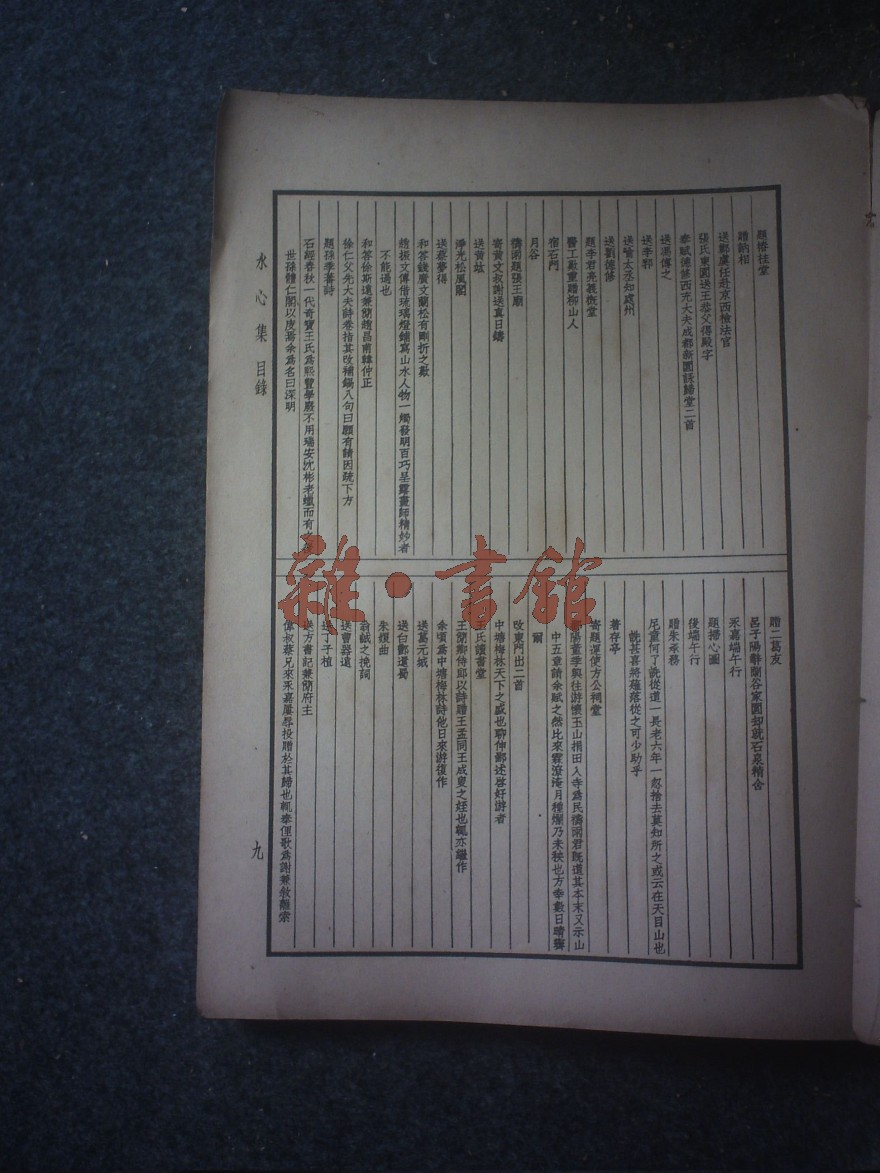 題椿桂堂
贈訥相
送鄭虞任赴京西檢法官
張氏東園送王恭父得殿字
奉賦德修西充大夫成都新園詠歸堂二首
送馮傅之
送李郛
送喻太丞知處州
送劉德修
題李君亮義槩堂
醫工歎重贈柳山人
宿石門
月谷
禱雨題張王廟
寄黃文叔謝送真日鑄
送黃竑
淨光松風閣
送蔡夢得
和答錢廣文蘭松有剛忻之歎
趙振文傅借琉璃燈鋪寫山水人物一燭發明百巧呈露畫師精妙者
不能過也
和答徐斯遠兼簡趙昌甫韓仲正
徐仁父先大夫詩卷指其改補鍋八句曰願有請因疏下方
題孫季蕃詩
石經春秋一代奇寶王氏為熙豐學廢不用瑞安沈彬老蠟而有
世孫體仁閣以庋焉余為名曰深明
贈二葛友
呂子陽辭蘭谷家園却就石泉精舍
永嘉端午行
題掃心圖
後端午行
贈朱承務
尼童何了說從道一長老六年一忽捨去莫知所之或云在天目山也
說甚喜將薙落從之可少助乎
著存亭
寄題運使方公祠堂
陽董季興往游懷玉山捐田入寺為民禱雨君既道其本末又示山
中五章請余賦之然比來霖潦淹月種爛乃未秧也方幸數日晴霽
爾
改東門出二首
中塘梅林天下之盛也聊伸鄙述啓好游者
王氏讀書堂
王簡卿侍郎以詩贈王孟同王成叟之姪也輒亦繼作
余頃為中塘梅林詩他日來游復作
送葛元城
送白酆還蜀
朱嫚曲
翁誠之挽詞
送曹器遠
送丁子植
送方書記兼簡府主
偉叔蔡兄來永嘉屢辱投贈於其歸也輒奉俚歌為謝兼敘離索
水心集 目錄
九
雜·書館